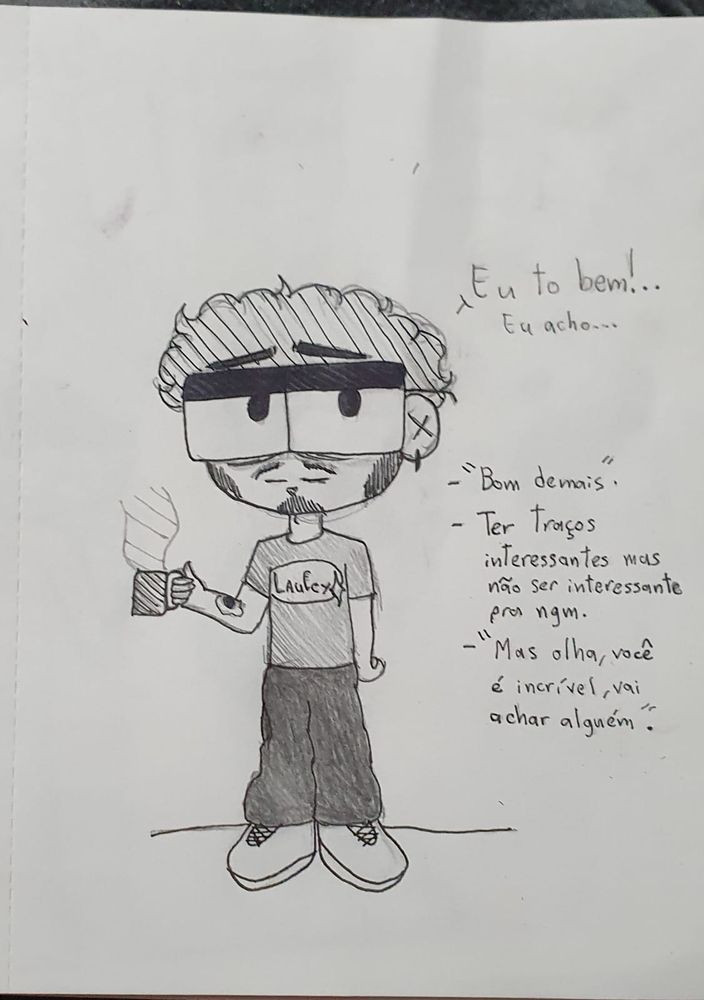 Eu to bem!..
Eu acho...
- "Bom demais".
- Ter traços
interessantes mas
não ser interessante
pra ngm.
- "Mas olha, você
é incrível, vai
achar alguém".